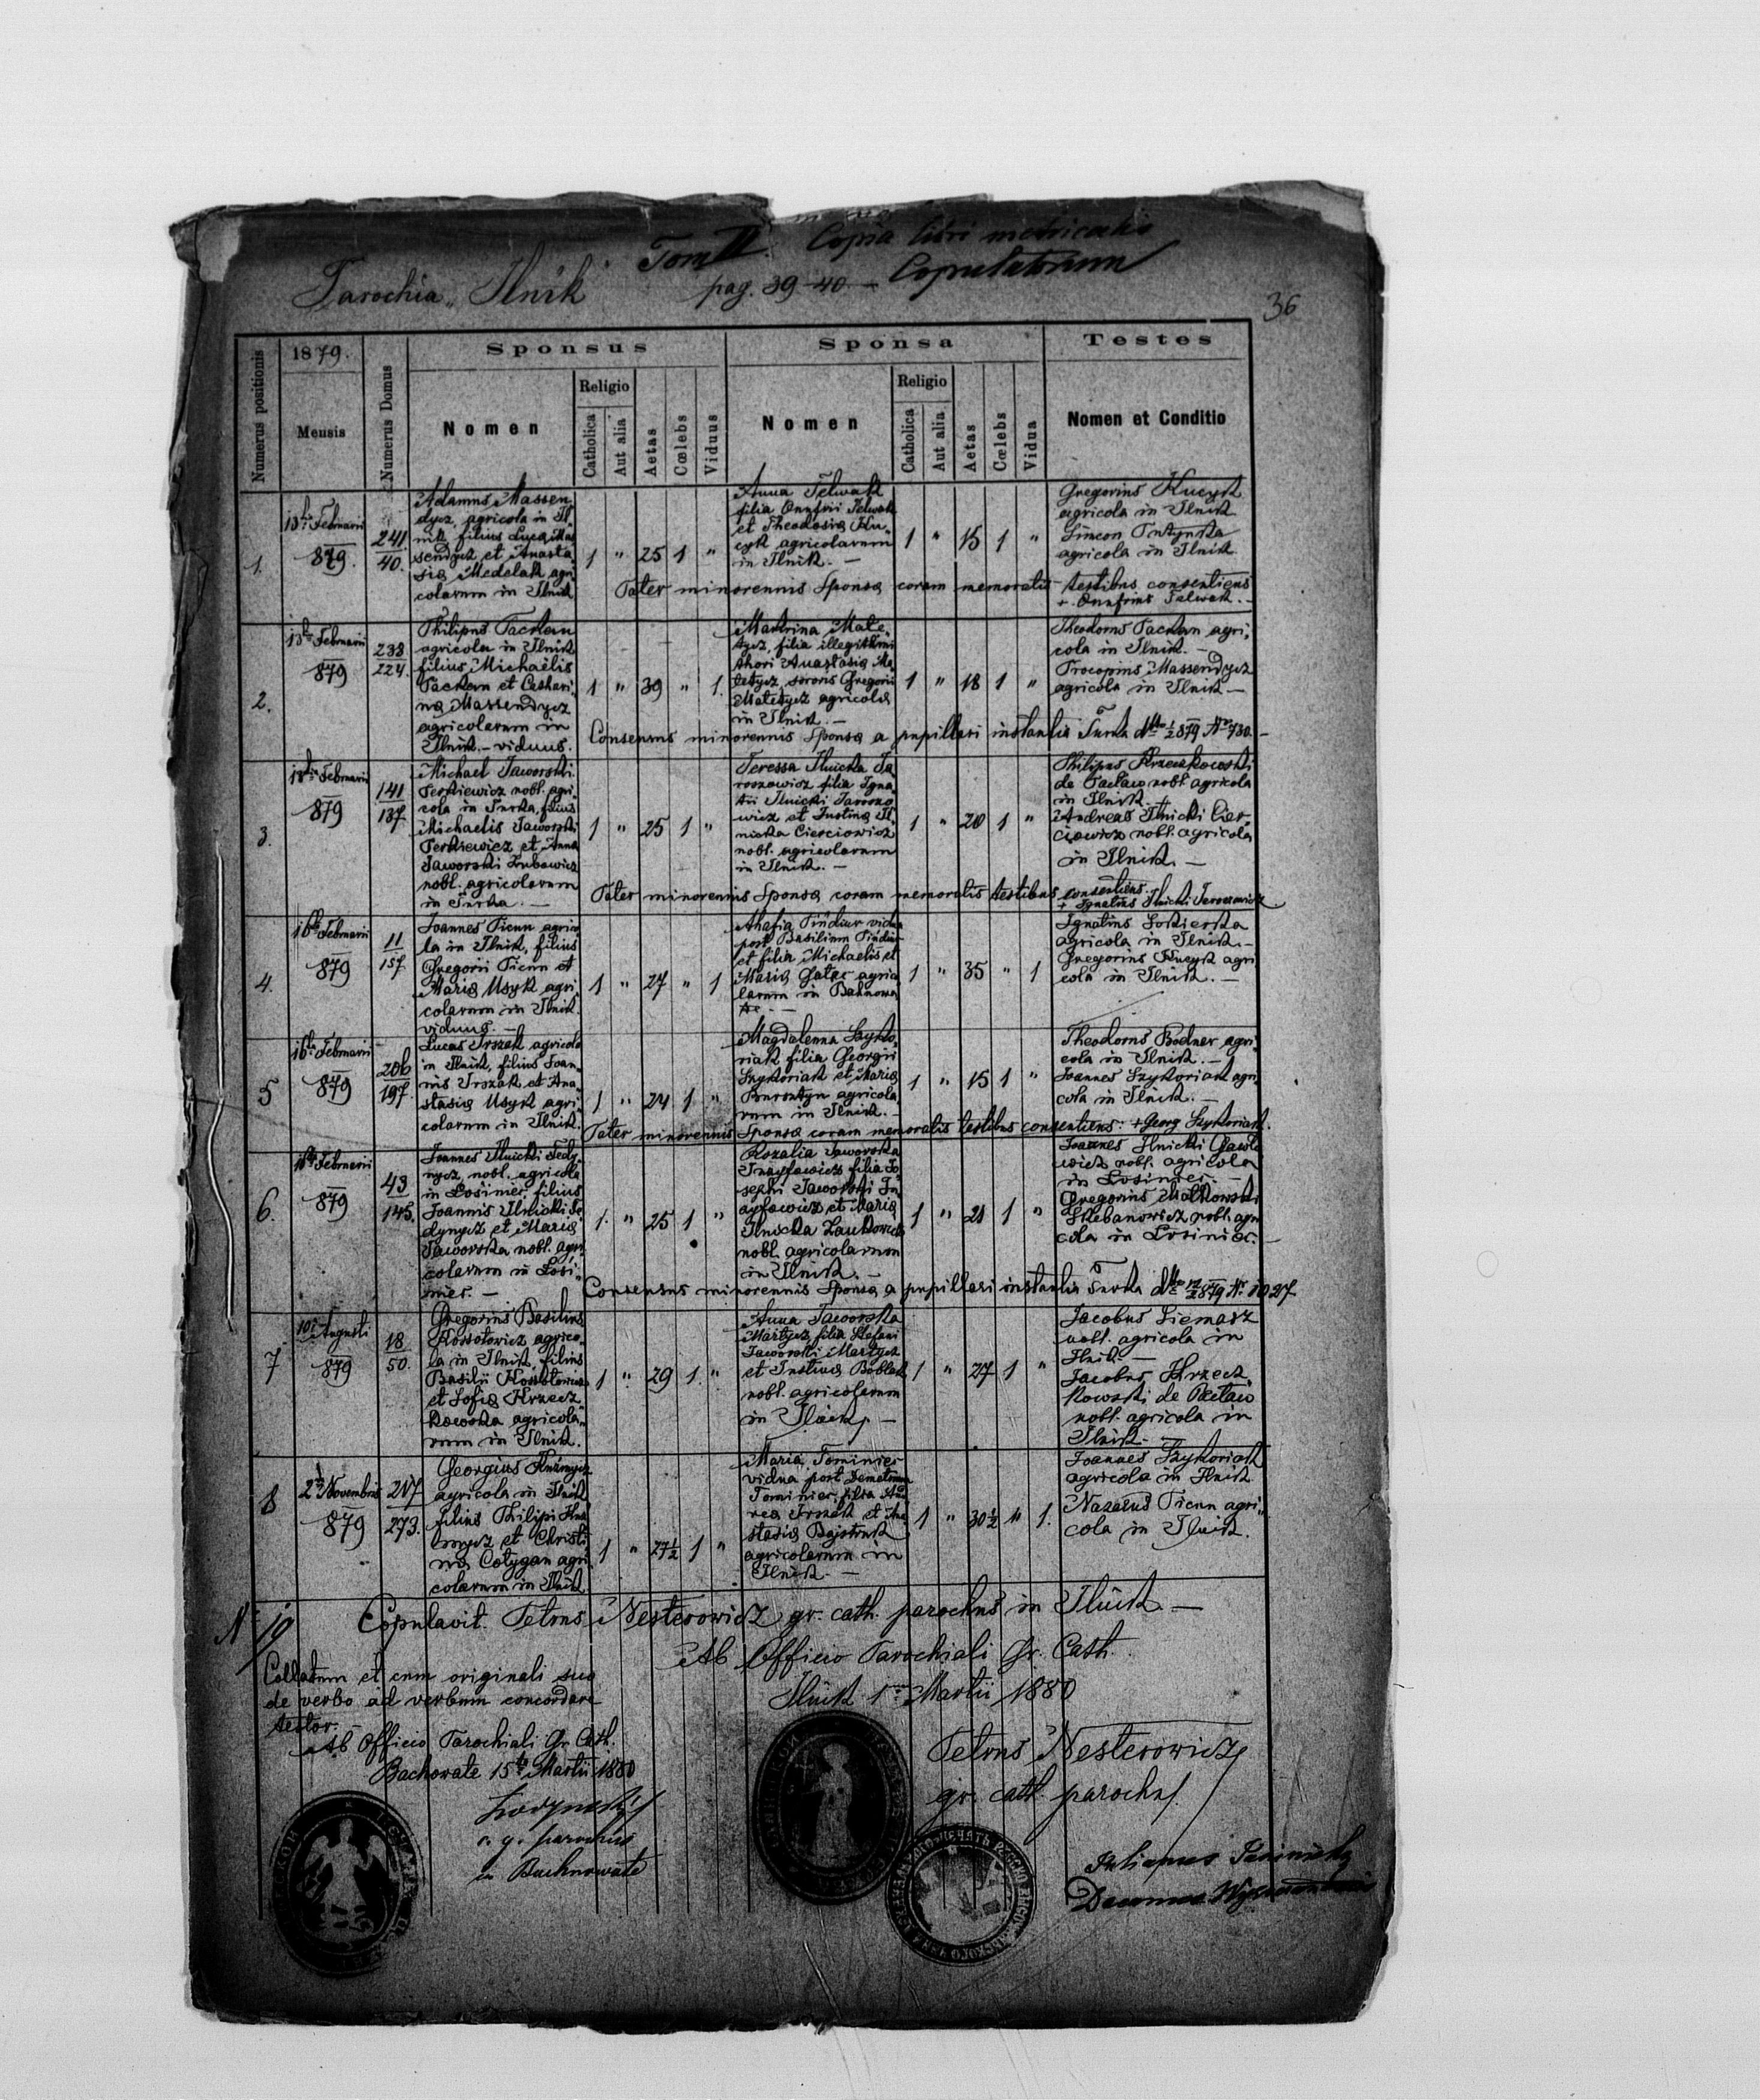 Tom II. Copia libri metricalis
Parochia „Ilnik" pag. 39-40 — Copulatorum
36
Numerus positionis
1879.
Mensis
Numerus Domus
Sponsus
Nomen
Religio
Catholica
Aut alia
Aetas
Cœlebs
Viduus
Sponsa
Nomen
Religio
Catholica
Aut alia
Aetas
Cœlebs
Vidua
Testes
Nomen et Conditio
1.
13 Februarii
879.
241
40.
Adamus Massen
dycz, agricola in Il
nik, filius Lucæ Mas
sendycz et Anasta
siæ Medelak agri
colarum in Ilnik
1 " 25 1 "
Anna Felwak
filia Onufrii Felwak
et Theodosiæ Ku„
cyk agricolarum
in Ilnik. —
1 " 15 1 "
Gregorius Kucyk
agricola in Ilnik
Simeon
agricola in Ilnik
Pater minorennis Sponsæ coram memoratis testibus consentiens
+ Onufrius Felwak. —
2.
13 Februarii
879
238
224.
Philipus Packan
agricola in Ilnik
filius Michaëlis
Packan et Cathari„
næ Massendycz
agricolarum in
Ilnik. — viduus.
1 " 39 " 1.
Makrina Mate„
tycz, filia illegithimi
thori Anastasiæ Ma
tetycz sororis Gregorii
Matetycz agricolæ
in Ilnik. —
1 " 18 1 "
Theodorus Packan agri„
cola in Ilnik. —
Procopius Massendycz
agricola in Ilnik —
Consensus minorennis Sponsæ a pupillari instantia Turka 879 Nr 730. —
3.
13 Februarii
879
141
137.
Michael Jaworski
Terkiewicz nobl. agri„
cola in Turka, filius
Michaelis Jaworski
Terkiewicz et Anna
Jaworski Zubowicz
nobl. agricolarum
in Turka. —
1 " 25 1 "
Teressa Ilnicka Ja
roszowicz filia Igna
tii Ilnicki Jaroszo
wicz et Justina Il„
nicka Cierciowicz
nobl. agricolarum
in Ilnik. —
1 " 20 1 "
Philipus Krzeczkowski
de Pacław nobl. agricola
in Ilnik. +
Andreas Ilnicki Cier„
ciowicz nobl. agricola
in Ilnik. —
Pater minorennis Sponsæ coram memoratis testibus consentiens.
+ Ignatius Ilnicki Jaroszowicz
4.
16 Februarii
879
11
157
Joannes Picun agrico
la in Ilnik, filius
Gregorii Picun et
Mariæ Usyk agri„
colarum in Ilnik.
viduus. —
1 " 27 " 1
Ahafia Pindiur vidua
post Basilium Pindiur
et filia Michaelis et
Mariæ Gater agrico
larum in Bahnowa
te. —
1 " 35 " 1
Ignatius
agricola in Ilnik. —
Gregorius Kucyk agri
cola in Ilnik. —
5
16 Februarii
879
206
197.
Lucas Irszak agricola
in Ilnik, filius Joan„
nis Irszak et Ana„
stasiæ Usyk agri„
colarum in Ilnik.
1 " 24 1 "
Magdalenna Szyko„
riak filia Georgii
Szykoriak et Mariæ
Bursztyn agricola
rum in Ilnik. —
1 " 15 1 "
Theodorus Bodnar agri„
cola in Ilnik. —
Joannes Szykoriak agri„
cola in Ilnik. —
Pater minorennis Sponsæ coram memoratis testibus consentiens: + Georg Szykoriak.
6.
16 Februarii
879
43
145.
Joannes Ilnicki Fedy
nycz, nobl. agricola
in Łosiniec, filius
Joannis Ilnicki Fe
dynycz et Mariæ
Jaworska nobl. agri
colarum in Łosi„
niec. —
1. " 25 1 "
Rozalia Jaworska
filia Jo
sephi Jaworski
et Mariæ
Ilnicka
nobl. agricolarum
in Ilnik. —
1 " 21 1 "
Joannes Ilnicki
wicz nobl. agricola
in Łosiniec. —
Gregorius Matkowski
nobl. agri
cola in Łosiniec. —
Consensus minorennis Sponsæ a pupillari instantia Turka 879 Nr 1027.
7
10 Augusti
879
18
50.
Gregorius Basilius
agrico„
la in Ilnik, filius
Basilii
et Sofiæ Krzecz„
kowska agricola„
rum in Ilnik.
1 " 29 1 "
Anna Jaworska
Martycz, filia Stefani
Jaworski Martycz
et Justina Boblak
nobl. agricolarum
in Ilnik. —
1 " 27 1 "
Jacobus Siemasz
nobl. agricola in
Ilnik. —
Jacobus Krzecz„
kowski de Pacław
nobl. agricola in
Ilnik. —
8
2 Novembris
879
217
273.
Georgius
agricola in Ilnik
filius Philipi
et Christi
næ Cotygan agri
colarum in Ilnik
1 " 27½ 1 "
Maria Tominiec
vidua post Demetrium
Tominiec, filia And
reæ Irszak et Ana
stasiæ Bajstruk
agricolarum in
Ilnik. —
1 " 30½ " 1.
Joannes Szykoriak
agricola in Ilnik
Nazarius Picun agri„
cola in Ilnik.
N 19
Copulavit Petrus Nesterowicz gr. cath. parochus in Ilnik. —
Ab Officio Parochiali Gr. Cath.
Ilnik 1 Martii 1880
Collatum et cum originali suo
de verbo ad verbum concordare
testor. —
Ab Officio Parochiali Gr. Cath.
Bachowate 15 Martii 1880
r. g. parochus
in Bachnowate
Petrus Nesterowicz
gr. cath. parochus
Julianus
Decanus